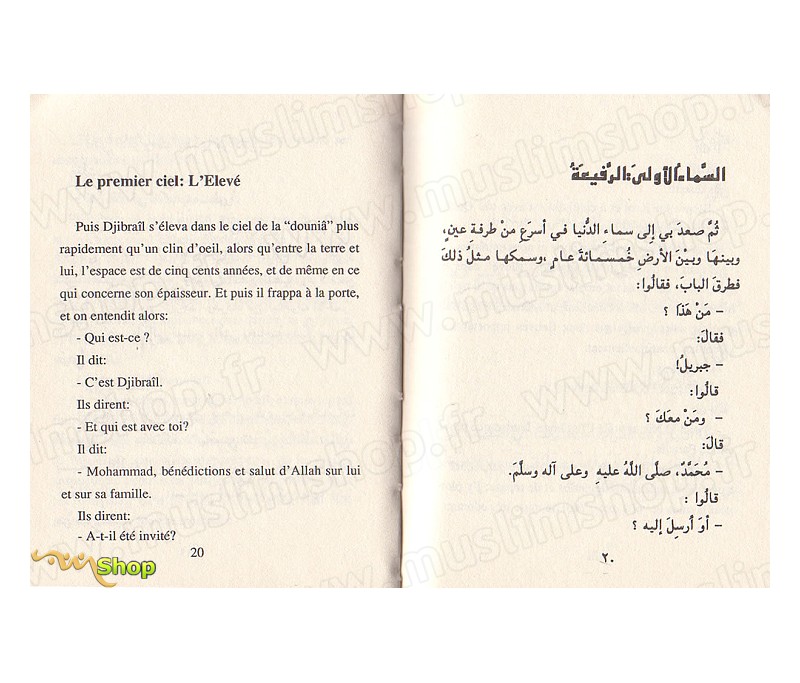 Le premier ciel: L'Elevé
Puis Djibraîl s'éleva dans le ciel de la "douniâ" plus
rapidement qu'un clin d'oeil, alors qu'entre la terre et
lui, l'espace est de cinq cents années, et de même en ce
qui concerne son épaisseur. Et puis il frappa à la porte,
et on entendit alors:
- Qui est-ce ?
Il dit:
- C'est Djibraîl.
Ils dirent:
- Et qui est avec toi?
Il dit:
- Mohammad, bénédictions et salut d'Allah sur lui
et sur sa famille.
Ils dirent:
- A-t-il été invité?
20
السَّماءُ الأولىَ: الرَّفيعَةُ
ثُمَّ صعدَ بي إلى سماءِ الدُّنيا في أسرَعِ منْ طرفةِ عينٍ،
وبينهَا وبيْنَ الأرضِ خُمسمائةَ عامٍ ،وسمكها مثلُ ذلكَ
فطرقَ البابَ، فقالُوا:
– مَنْ هَذَا ؟
فقالَ:
– جبريلُ!
قالُوا:
– ومَنْ معَكَ ؟
قالَ:
– مُحَمَّدٌ، صلَّى اللَّهُ عليهِ وعلى آله وسلَّمَ.
قالُوا :
– أوَ أُرسِلَ إليه ؟
٢٠
Shop
www.muslimshop.fr